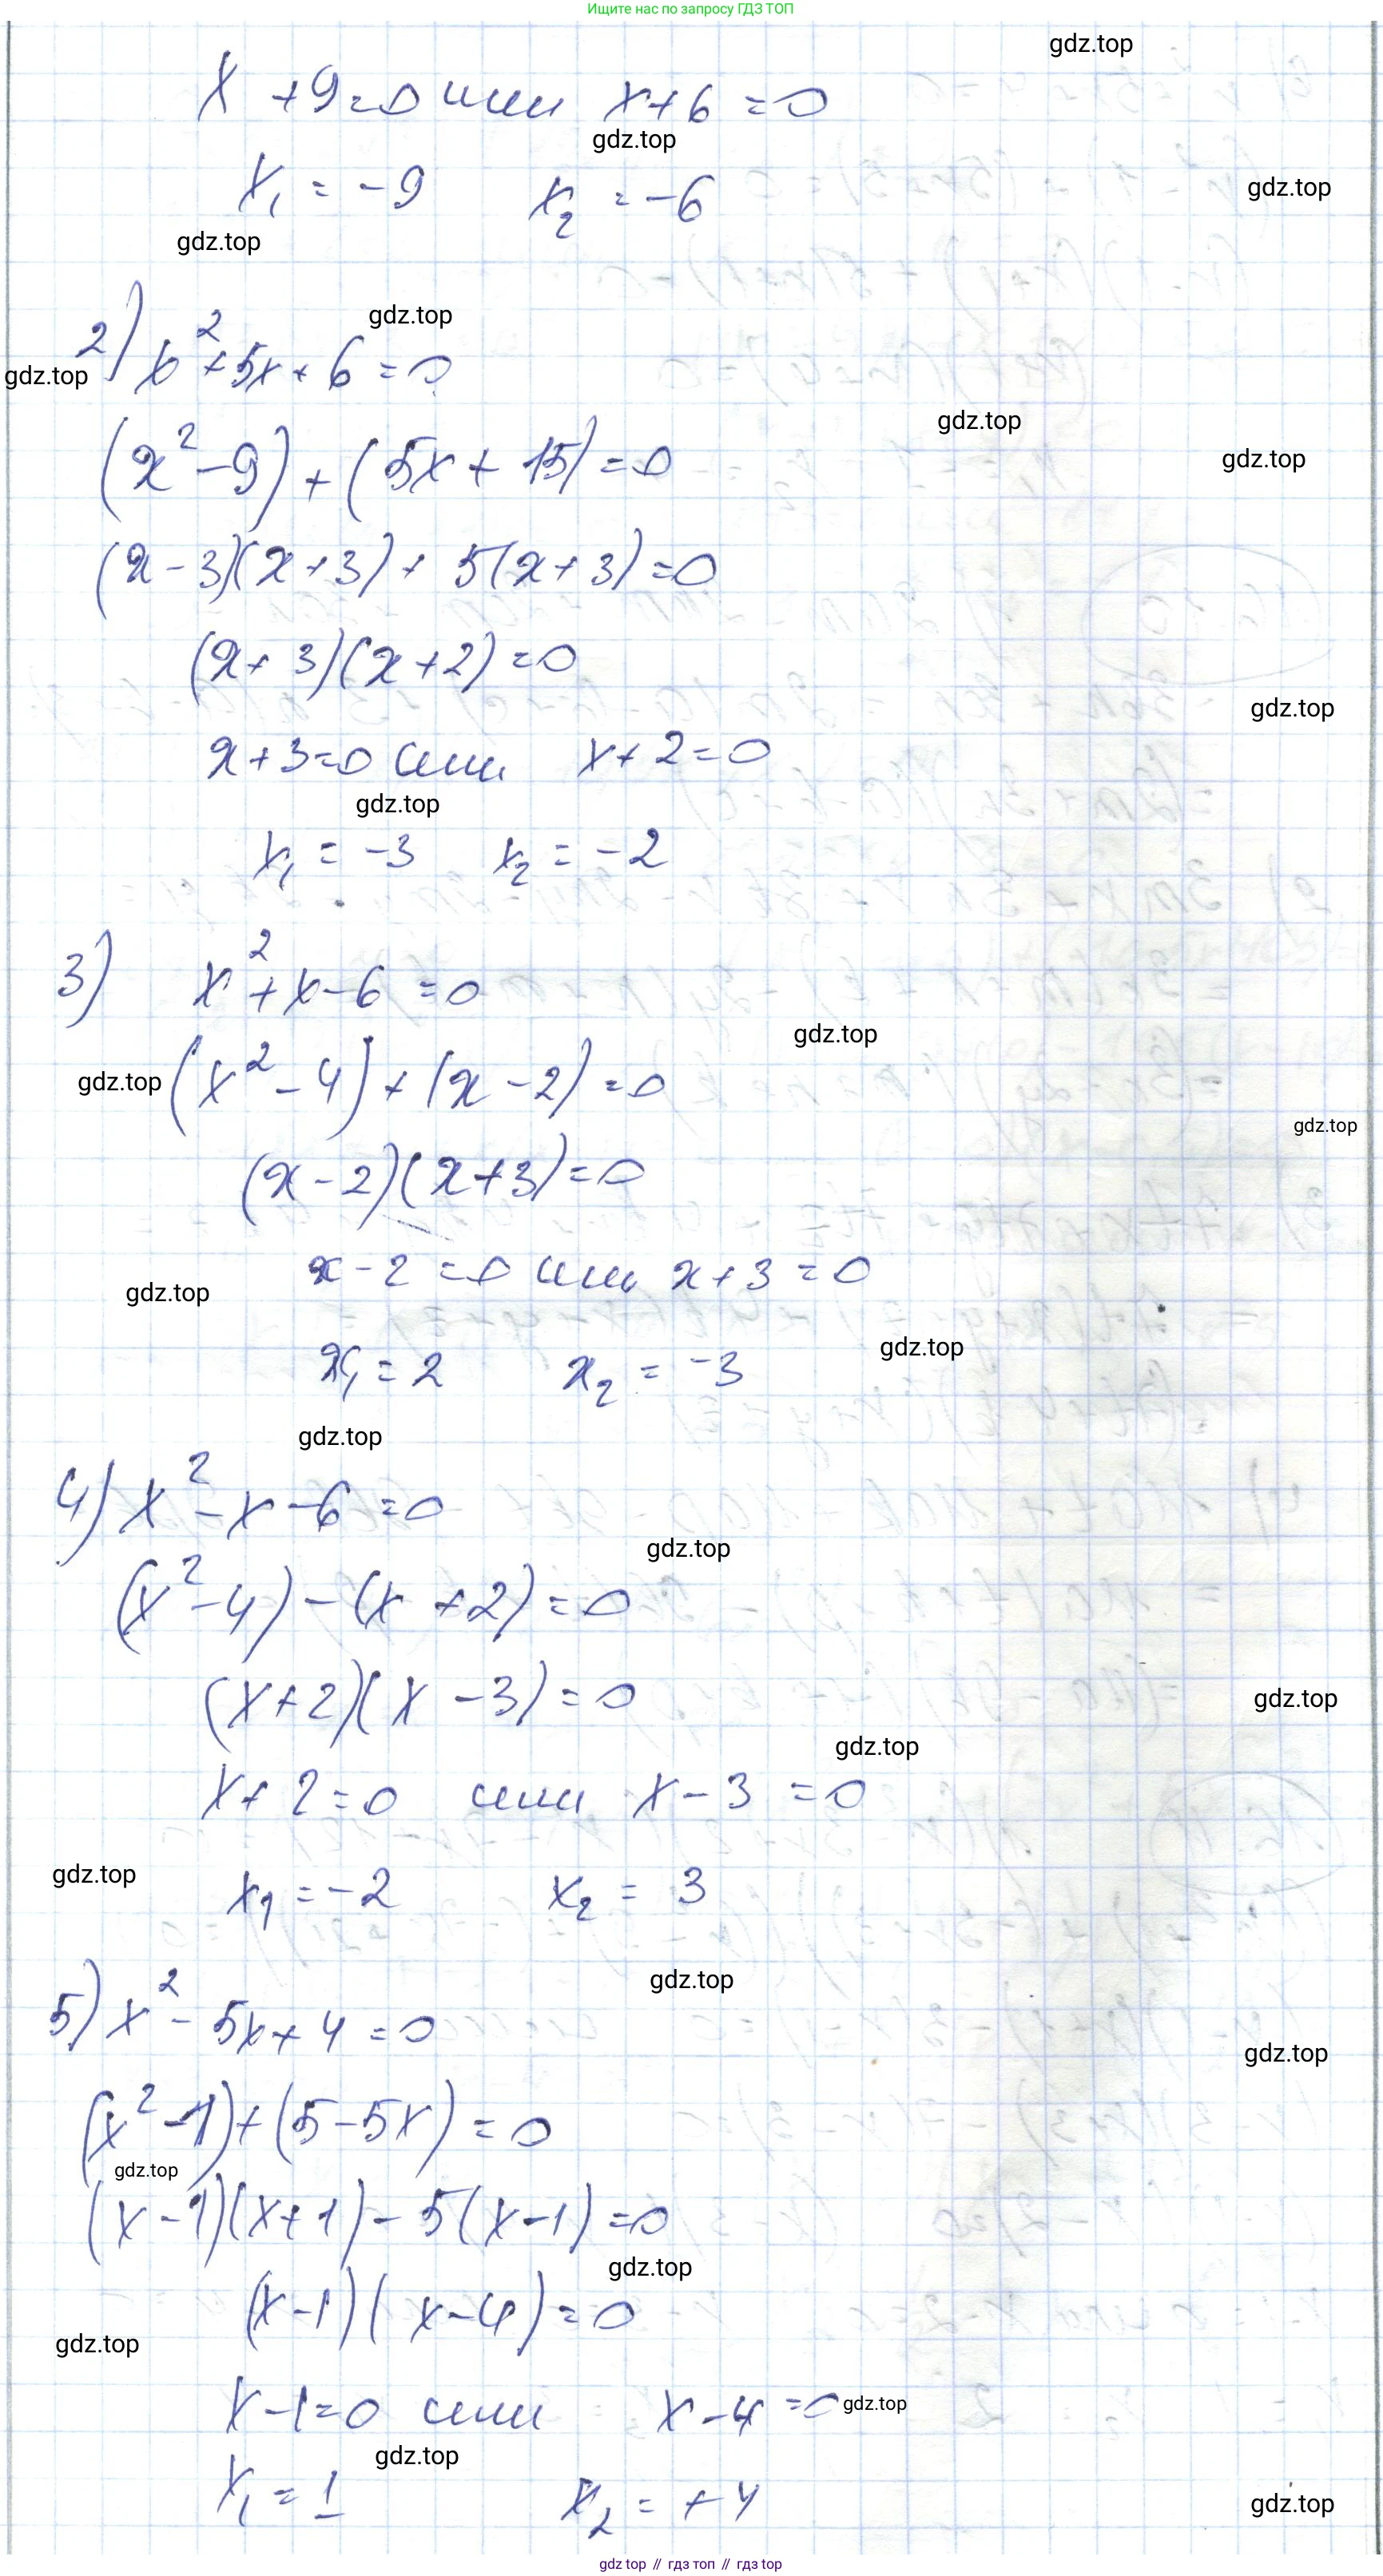 Ищите нас по запросу ГДЗ ТОП
gdz.top
x + 9 = 0 или x + 6 = 0
gdz.top
x₁ = -9 x₂ = -6
gdz.top
gdz.top
gdz.top
2) x² + 5x + 6 = 0
gdz.top
gdz.top
(x² - 9) + (5x + 15) = 0
gdz.top
(x - 3)(x + 3) + 5(x + 3) = 0
(x + 3)(x + 2) = 0
gdz.top
x + 3 = 0 или x + 2 = 0
gdz.top
x₁ = -3 x₂ = -2
3) x² + x - 6 = 0
gdz.top
gdz.top
(x² - 4) + (x - 2) = 0
gdz.top
(x - 2)(x + 3) = 0
x - 2 = 0 или x + 3 = 0
gdz.top
gdz.top
x₁ = 2 x₂ = -3
gdz.top
4) x² - x - 6 = 0
gdz.top
(x² - 4) - (x + 2) = 0
(x + 2)(x - 3) = 0
gdz.top
gdz.top
x + 2 = 0 или x - 3 = 0
gdz.top
x₁ = -2 x₂ = 3
gdz.top
5) x² - 5x + 4 = 0
gdz.top
(x² - 1) + (5 - 5x) = 0
gdz.top
(x - 1)(x + 1) - 5(x - 1) = 0
gdz.top
(x - 1)(x - 4) = 0
gdz.top
x - 1 = 0 или x - 4 = 0
gdz.top
gdz.top
x₁ = 1 x₂ = +4
gdz.top
gdz top // гдз топ // гдз top